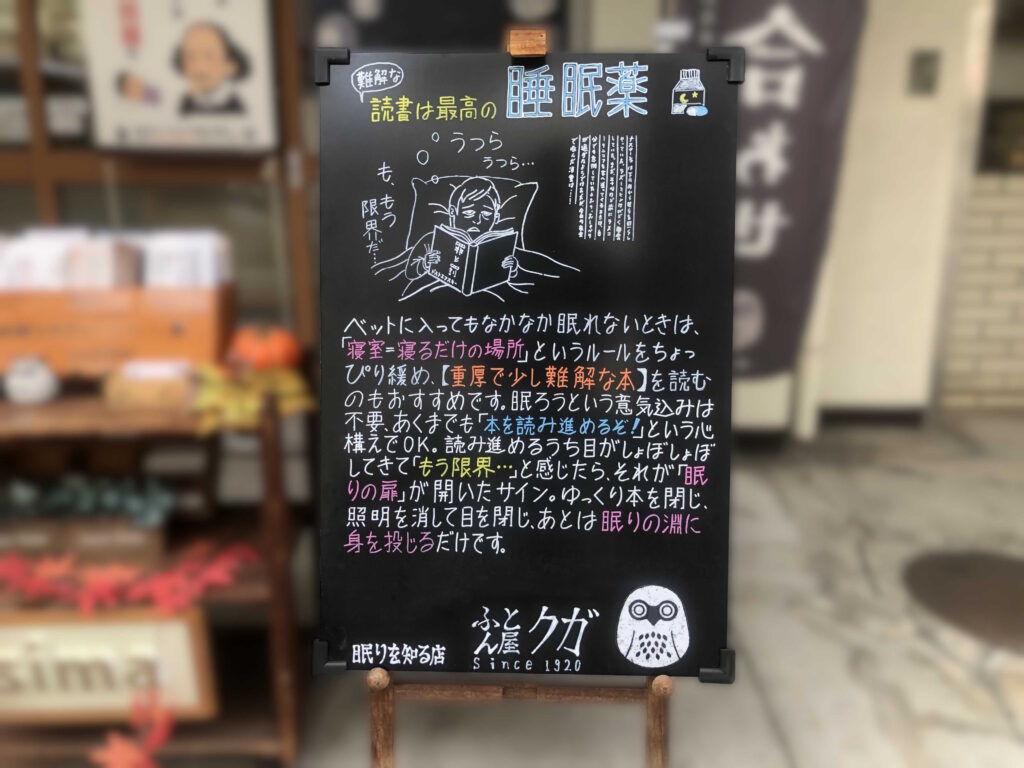 難解な
読書は最高の睡眠薬
うつら
うつら…
も、もう
限界だ…
罪と罰
ドストエフスキー
ベットに入ってもなかなか眠れないときは、
「寝室=寝るだけの場所」というルールをちょっ
ぴり緩め、【重厚で少し難解な本】を読む
のもおすすめです。眠ろうという意気込みは
不要、あくまでも「本を読み進めるぞ!」という心
構えでOK。読み進めるうち目がしょぼしょぼ
してきて「もう限界…」と感じたら、それが「眠
りの扉」が開いたサイン。ゆっくり本を閉じ、
照明を消して目を閉じ、あとは眠りの淵に
身を投じるだけです。
眠りを知る店
ふとん屋クガ
Since 1920
合わせ
sima